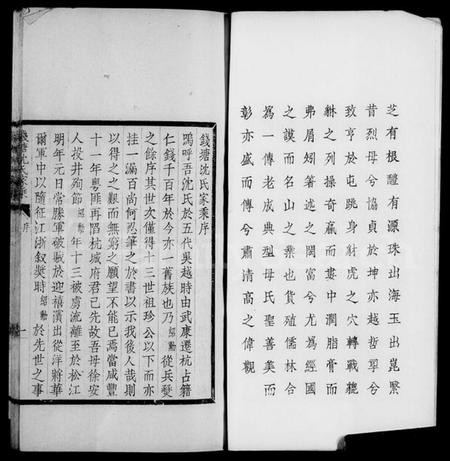 芝有根醴有源珠出海玉出崑繄
昔烈母兮協貞於坤亦越哲睪兮
致亨於屯跳身豺虎之穴轉戰龍
之列操奇贏而婁中潤脂膏而
弗屑矧著述之閎富兮尤爲經國
之謨而名山之業也貨殖儒林合
爲一傳老成典型母氏聖善美而
彰亦盛而傳兮肅清高之偉觀
錢塘沈氏家乘序
嗚呼吾沈氏於五代吳越時由武康遷杭占籍
仁錢千百年於今亦一舊族也乃紹勳從兵燹
之餘序其世次僅得十三世祖珍公以下而亦
挂一漏百尚何忍筆之於書以示我後人哉則
以得之之艱而無窮之願望不能已焉當咸豐
十一年粵匪再䧟杭城府君已先故吾母徐安
人投井殉節紹勳年十三被虜流離至於松江
明年元日常勝軍破賊於迎禧濱出從洋將華
爾軍中以隨征江浙敘奬時紹勳於先世之事
錢塘沈氏家乘 序 一